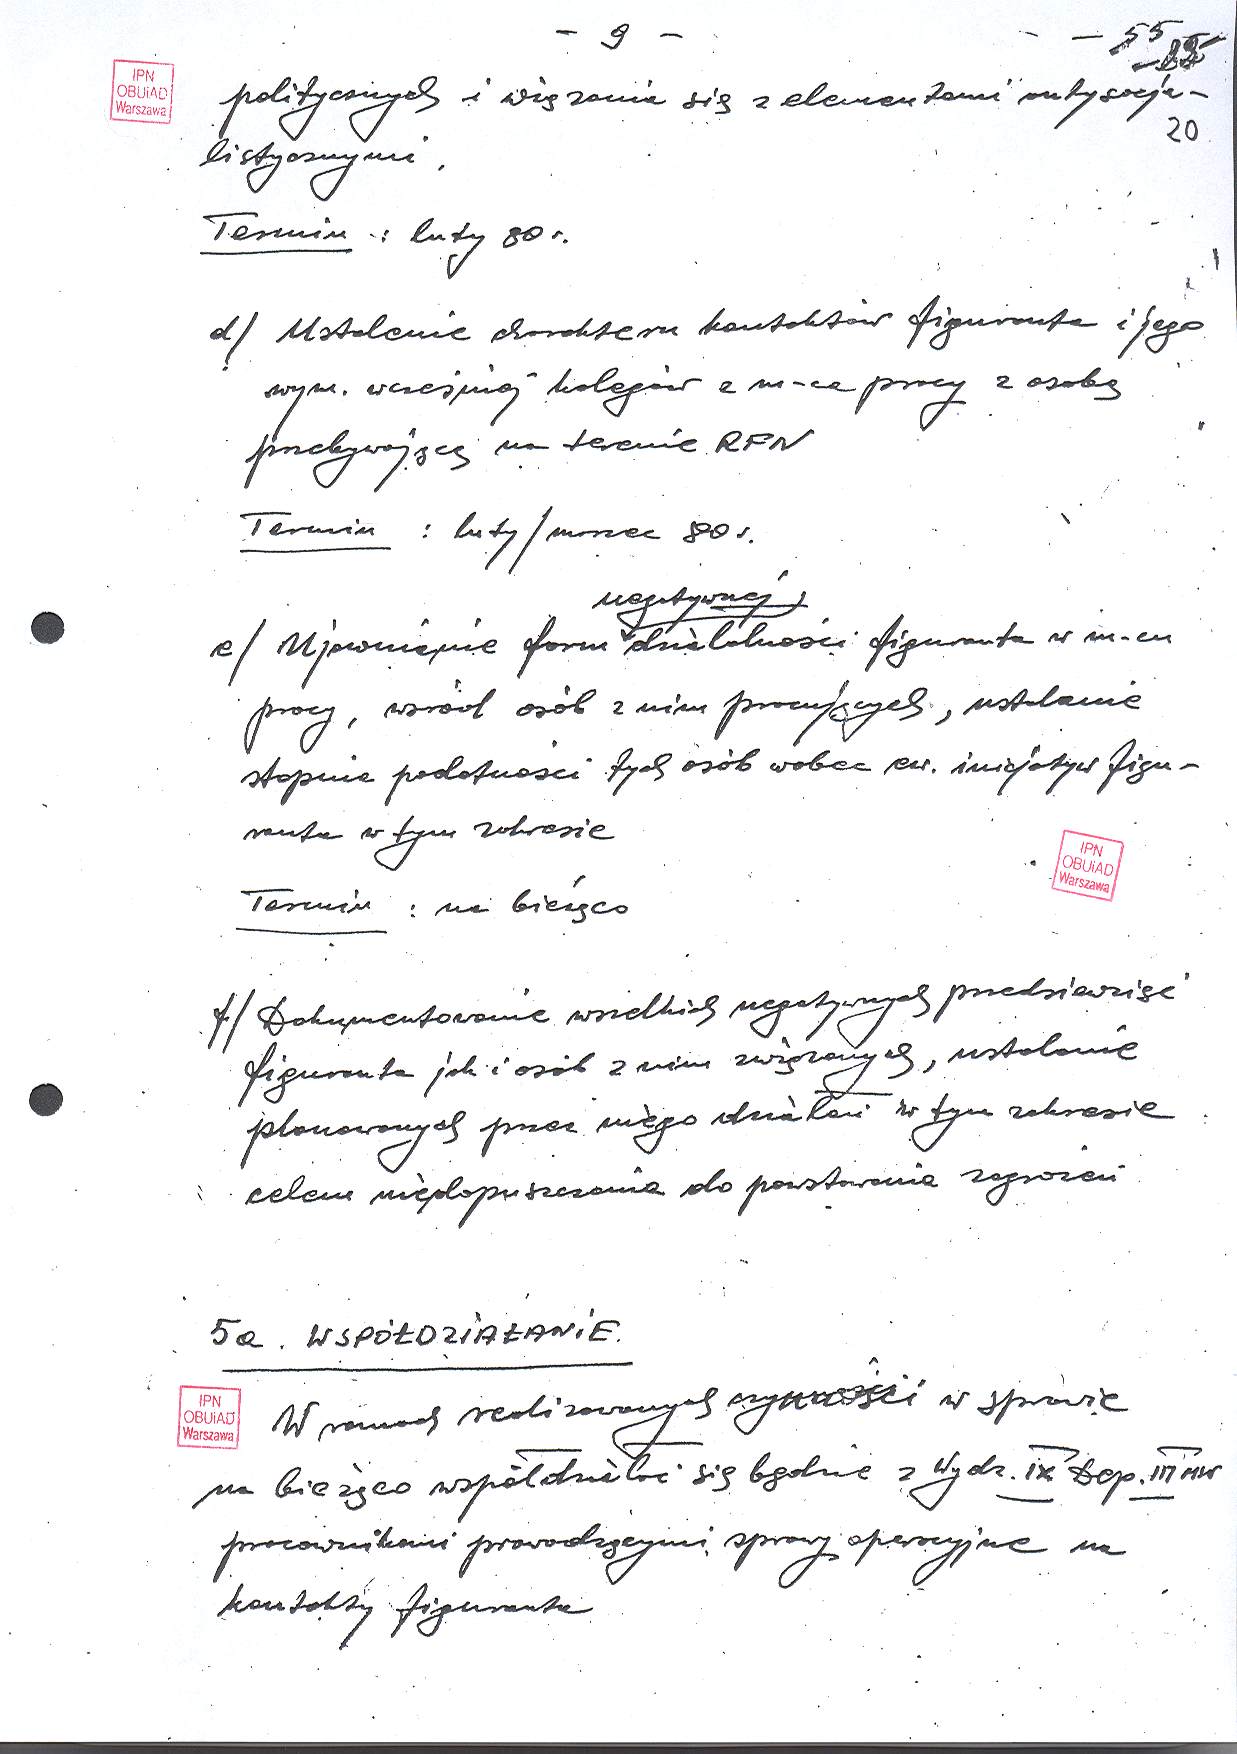 - 9 -
- 55
20
IPN
OBUiAD
Warszawa
politycznych i wiązania się z elementami antysocja-
listycznymi.
Termin : luty 80 r.
d/ Ustalenie charakteru kontaktów figuranta i jego
wym. wcześniej kolegów z m-ca pracy z osobą
przebywającą na terenie RFN
Termin : luty/marzec 80 r.
negatywnej
e/ Ujawnienie form działalności figuranta w m-cu
pracy, wśród osób z nim pracujących, ustalanie
stopnia podatności tych osób wobec ew. inicjatyw figu-
ranta w tym zakresie
IPN
OBUiAD
Warszawa
Termin : na bieżąco
f/ Dokumentowanie wszelkich negatywnych przedsięwzięć
figuranta jak i osób z nim związanych, ustalanie
planowanych przez niego działań w tym zakresie
celem niedopuszczenia do powstawania zagrożeń
5a. WSPÓŁDZIAŁANIE.
IPN
OBUiAD
Warszawa
W ramach realizowanych czynności w sprawie
na bieżąco współdziałać się będzie z Wydz. IX Dep. III MSW
pracownikami prowadzącymi sprawy operacyjne na
kontakty figuranta